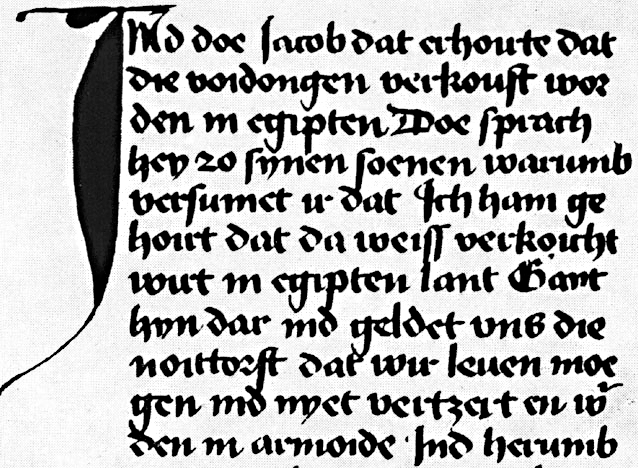 Ind doe Jacob dat erhoirte dat
die voidongen verkouft wor
den in egipten Doe sprach
hey zo synen soenen warumb
versumet ir dat Ich hain ge
hoirt dat da weiss verkoicht
wirt in egipten lant Gait
hyn dar ind geldet vns die
noittorft dat wir leuen moe
gen ind nyet vertzert en w̄
den in armoide Ind herumb